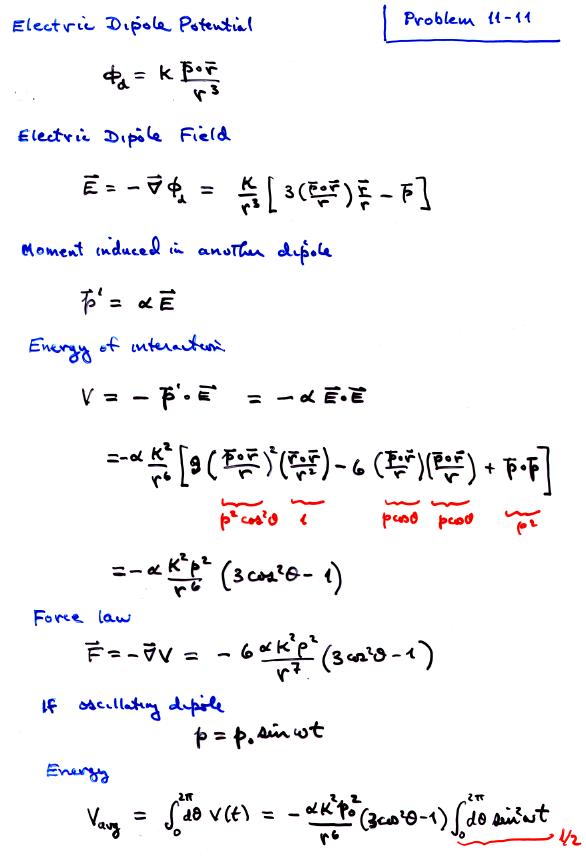 Electric Dipole Potential
Problem 11-11
ϕ_d = K p̄∘r̄ / r³
Electric Dipole Field
E⃗ = − ∇⃗ ϕ_d = K/r³ [ 3 (p̄∘r̄ / r) r̄/r − p̄ ]
Moment induced in another dipole
p⃗' = α E⃗
Energy of interaction
V = − p⃗'∘E⃗ = − α E⃗∘E⃗
= −α K²/r⁶ [ 9 (p̄∘r̄ / r)² (r̄∘r̄ / r²) − 6 (p̄∘r̄ / r)(p̄∘r̄ / r) + p̄∘p̄ ]
p²cos²θ 1 pcosθ pcosθ p²
= −α K²p²/r⁶ (3cos²θ − 1)
Force law
F⃗ = −∇⃗V = − 6 αK²p²/r⁷ (3cos²θ − 1)
If oscillating dipole
p = p₀ sin ωt
Energy
V_avg = ∫₀^2π dθ V(t) = − αK²p₀²/r⁶ (3cos²θ−1) ∫₀^2π dθ sin²ωt
1/2